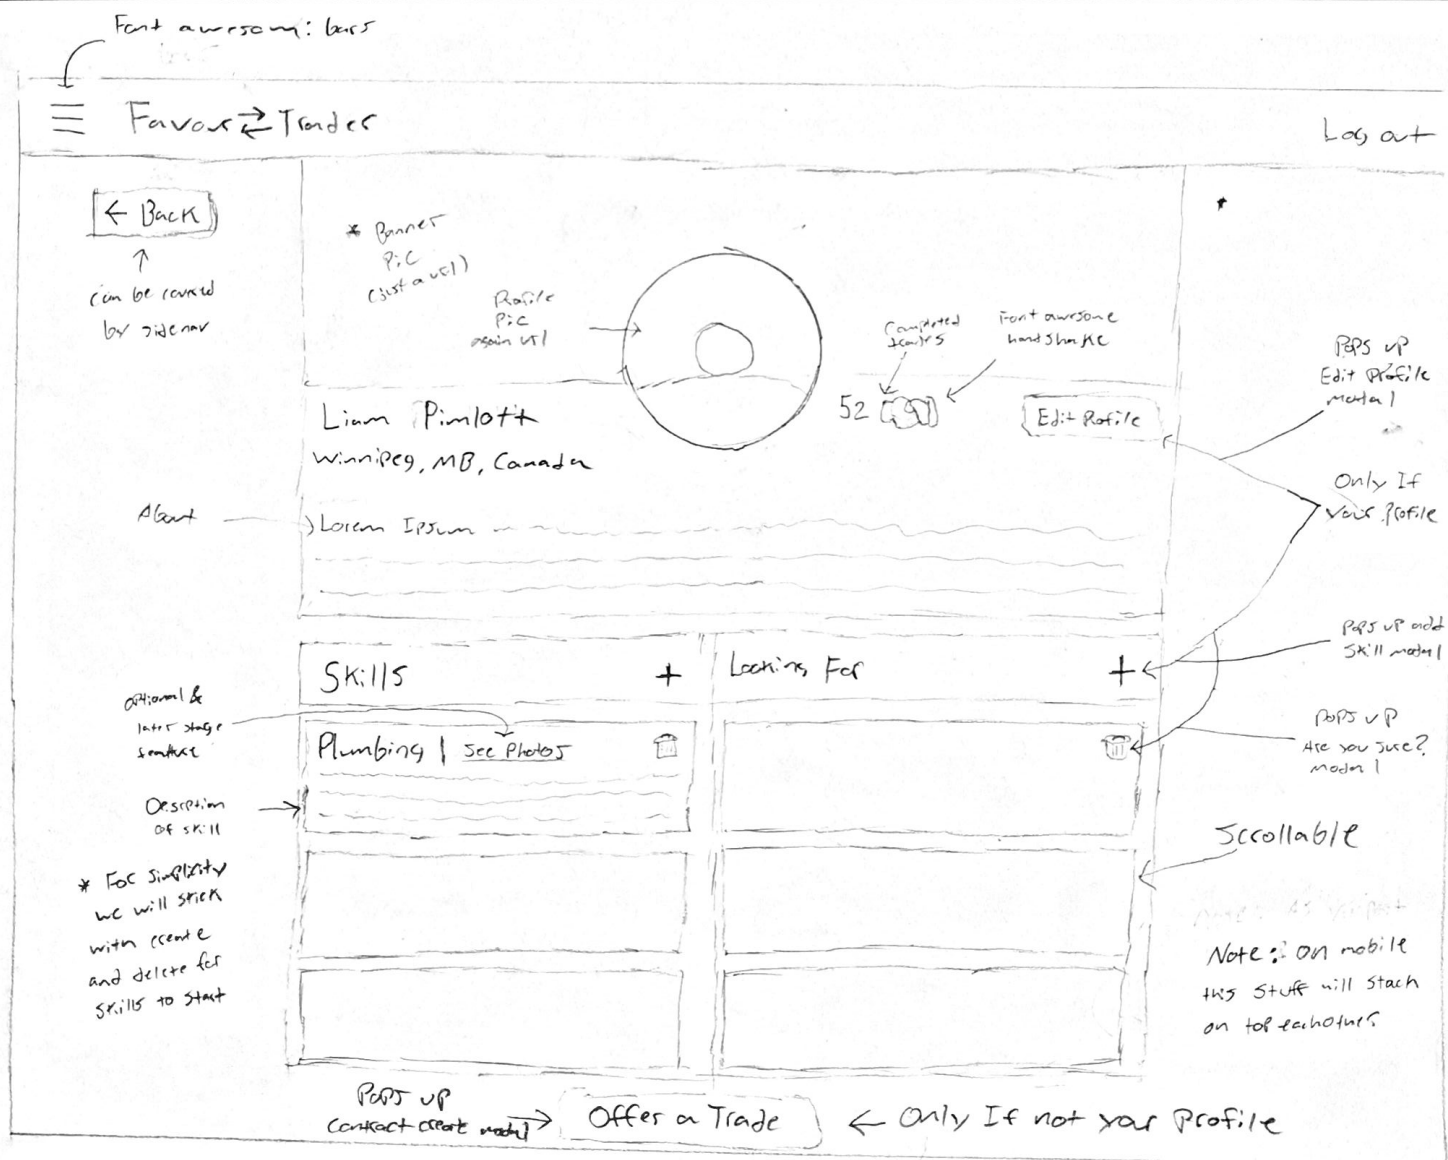 Font awesom: bars
Favor Trader
Log out
← Back
can be covered
by sidenav
* Banner
Pic
(just a url)
Profile
Pic
again url
Completed
trades
Font awesome
handshake
52
Edit Profile
Pops up
Edit Profile
Modal
Only If
your Profile
Liam Pimlott
Winnipeg, MB, Canada
About
Lorem Ipsum
Skills +
Looking For +
Pops up add
Skill modal
optional &
later stage
feature
Plumbing | See Photos
Pops up
Are you sure?
modal
Desription
of skill
Scrollable
* For simplixity
we will stick
with create
and delete for
skills to start
Note: On mobile
this stuff will stack
on top eachother
Pops up
Contract create modal
Offer a Trade
← Only If not your Profile